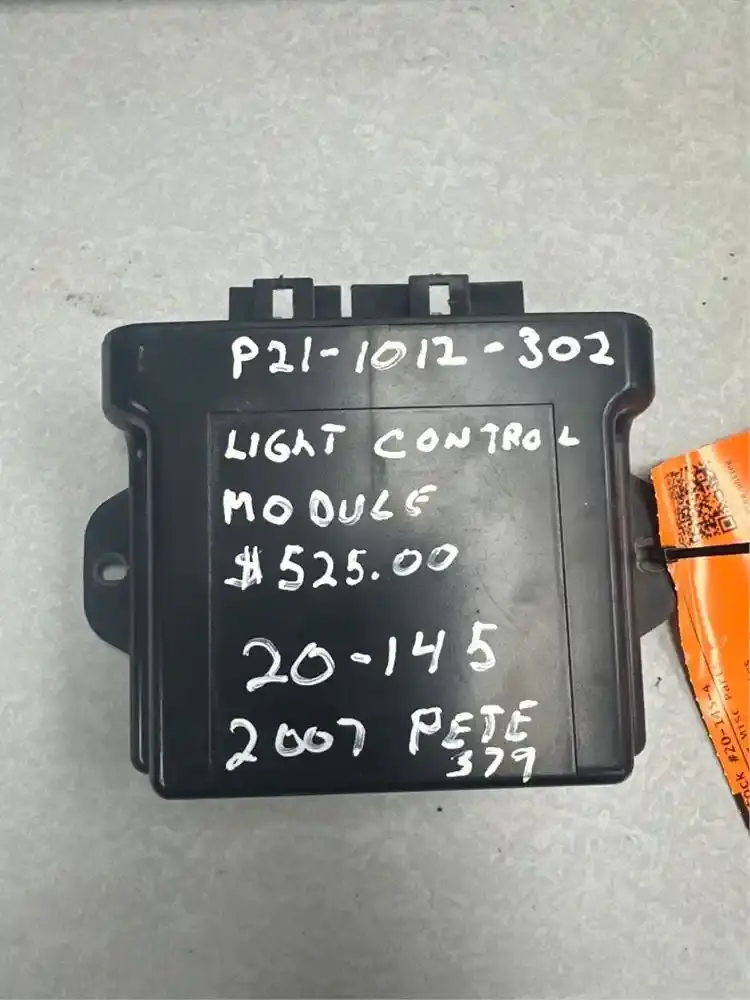 P21-1012-302
LIGHT CONTROL
MODULE
$525.00
20-145
2007 PETE
379
#20-145-4